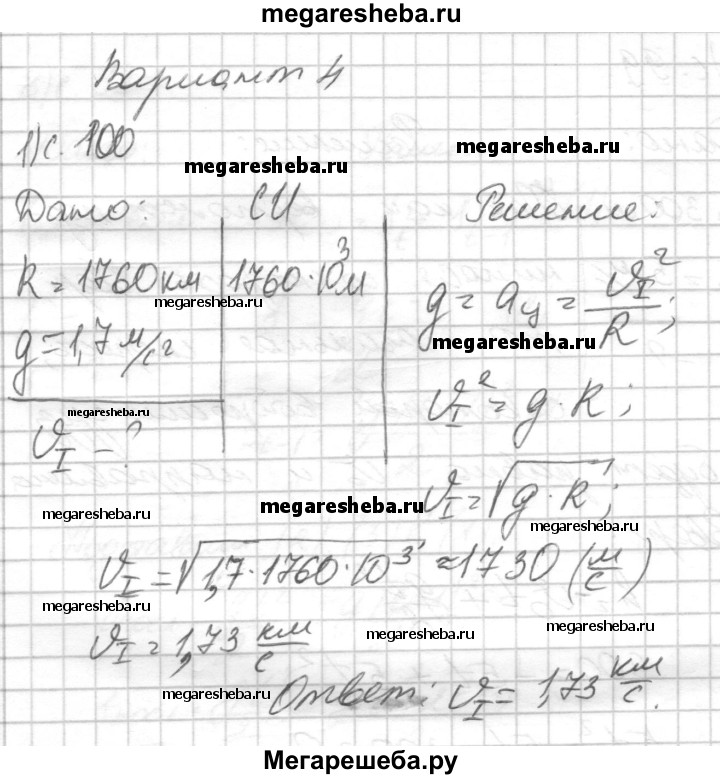 megaresheba.ru
Вариант 4
1) с. 100
megaresheba.ru megaresheba.ru
Дано: СИ Решение:
R = 1760 км 1760·10³ м
megaresheba.ru
g = aц = υI²/R;
g = 1,7 м/с²
megaresheba.ru
megaresheba.ru
υI² = g · R;
υI - ?
υI = √(g · R);
megaresheba.ru megaresheba.ru megaresheba.ru
υI = √(1,7·1760·10³) ≈ 1730 (м/с)
megaresheba.ru
υI = 1,73 км/с
megaresheba.ru megaresheba.ru
megaresheba.ru
Ответ: υI = 1,73 км/с.
Мегарешеба.ру